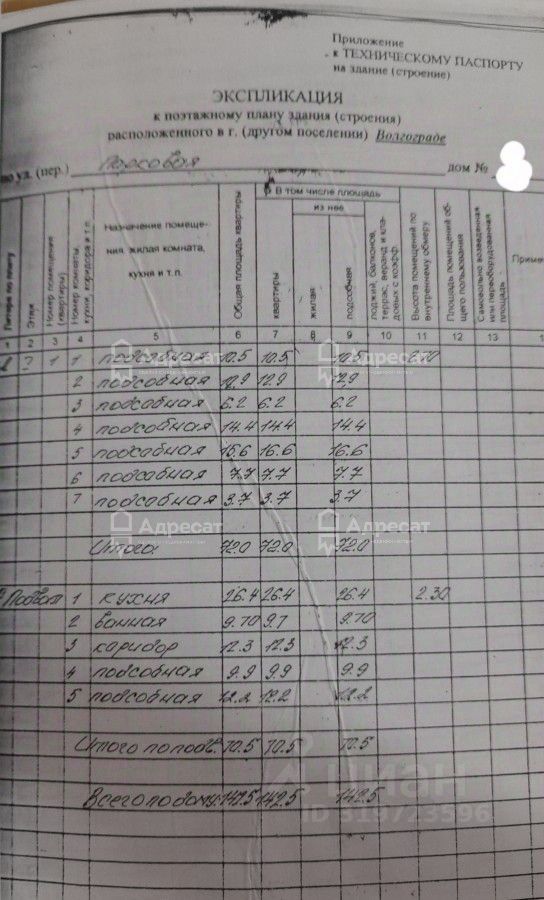 Приложение
к ТЕХНИЧЕСКОМУ ПАСПОРТУ
на здание (строение)
ЭКСПЛИКАЦИЯ
к поэтажному плану здания (строения)
расположенного в г. (другом поселении) Волгограде
по ул. (пер.) Парковая дом №
Литера по плану
Этаж
Номер помещения (квартиры)
Номер комнаты, кухни, коридора и т.п.
Назначение помещения жилая комната, кухня и т.п.
Общая площадь квартиры
В том числе площадь
из нее
квартиры
жилая
подсобная
лоджий, балконов, террас, веранд и кладовых с коэфф.
Высота помещений по внутреннему обмеру
Площадь помещений общего пользования
Самовольно возведенная или переоборудованная площадь
Приме
1 2 3 4 5 6 7 8 9 10 11 12 13
1 1 подсобная 10.5 10.5 10.5
2 подсобная 12.9 12.9 12.9
3 подсобная 6.2 6.2 6.2
4 подсобная 14.4 14.4 14.4
5 подсобная 16.6 16.6
6 подсобная 7.7 7.7 7.7
7 подсобная 3.7 3.7 3.7
Итого 72.0 72.0 72.0
Подвал 1 кухня 26.4 26.4 26.4 2.30
2 ванная 9.70 9.7 9.70
3 каридор 12.3 12.3 12.3
4 подсобная 9.9 9.9 9.9
5 подсобная 12.2 12.2 12.2
Итого по подв. 70.5 70.5 70.5
Всего по дому: 142.5 142.5 142.5
Адресат
Адресат
Адресат
Адресат
циан
ID 319723596